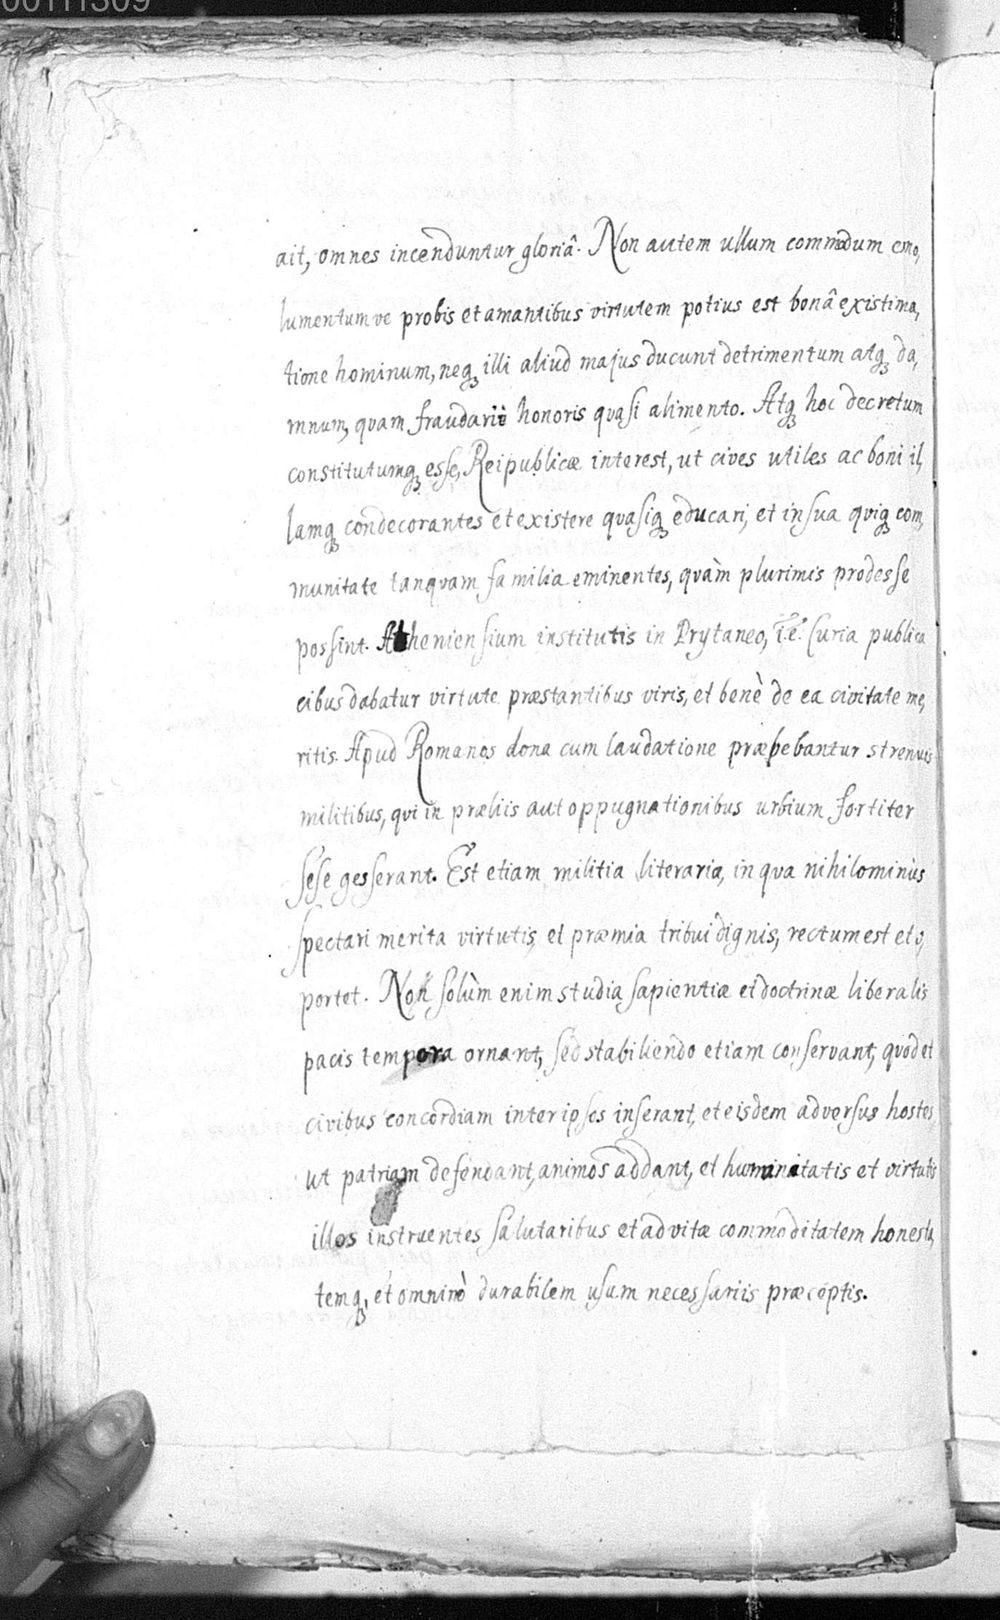 00111309
ait, omnes incenduntur gloriâ. Non autem ullum commodum emo,
lumentum ve probis et amantibus virtutem potius est bonâ existima,
tione hominum, neq; illi aliud majus ducunt detrimentum atq; da,
mnum, quam fraudari honoris quasi alimento. Atq; hoc decretum
constitutumq; esse, Reipublicæ interest, ut cives utiles ac boni il,
lamq; condecorantes et existere quasiq; educari, et in sua quiq; com,
munitate tanquam familia eminentes, quàm plurimis prodesse
possint. Atheniensium institutis in Prytaneo, i.e. Curia publica
cibus dabatur virtute præstantibus viris, et benè de ea civitate me,
ritis. Apud Romanos dona cum laudatione præbebantur strenuis
militibus, qui in præliis aut oppugnationibus urbium fortiter
sese gesserant. Est etiam militia literaria, in qua nihilominùs
spectari merita virtutis, et præmia tribui dignis, rectum est et o,
portet. Non solùm enim studia sapientiæ et doctrinæ liberalis
pacis tempora ornant, sed stabiliendo etiam conservant, quod et
civibus concordiam inter ipses inserant, et eisdem adversus hostes,
ut patriam defendant, animos addant, et humanitatis et virtutis
illos instruentes salutaribus et ad vitæ commoditatem honesta,
temq; et omninò durabilem usum necessariis præceptis.